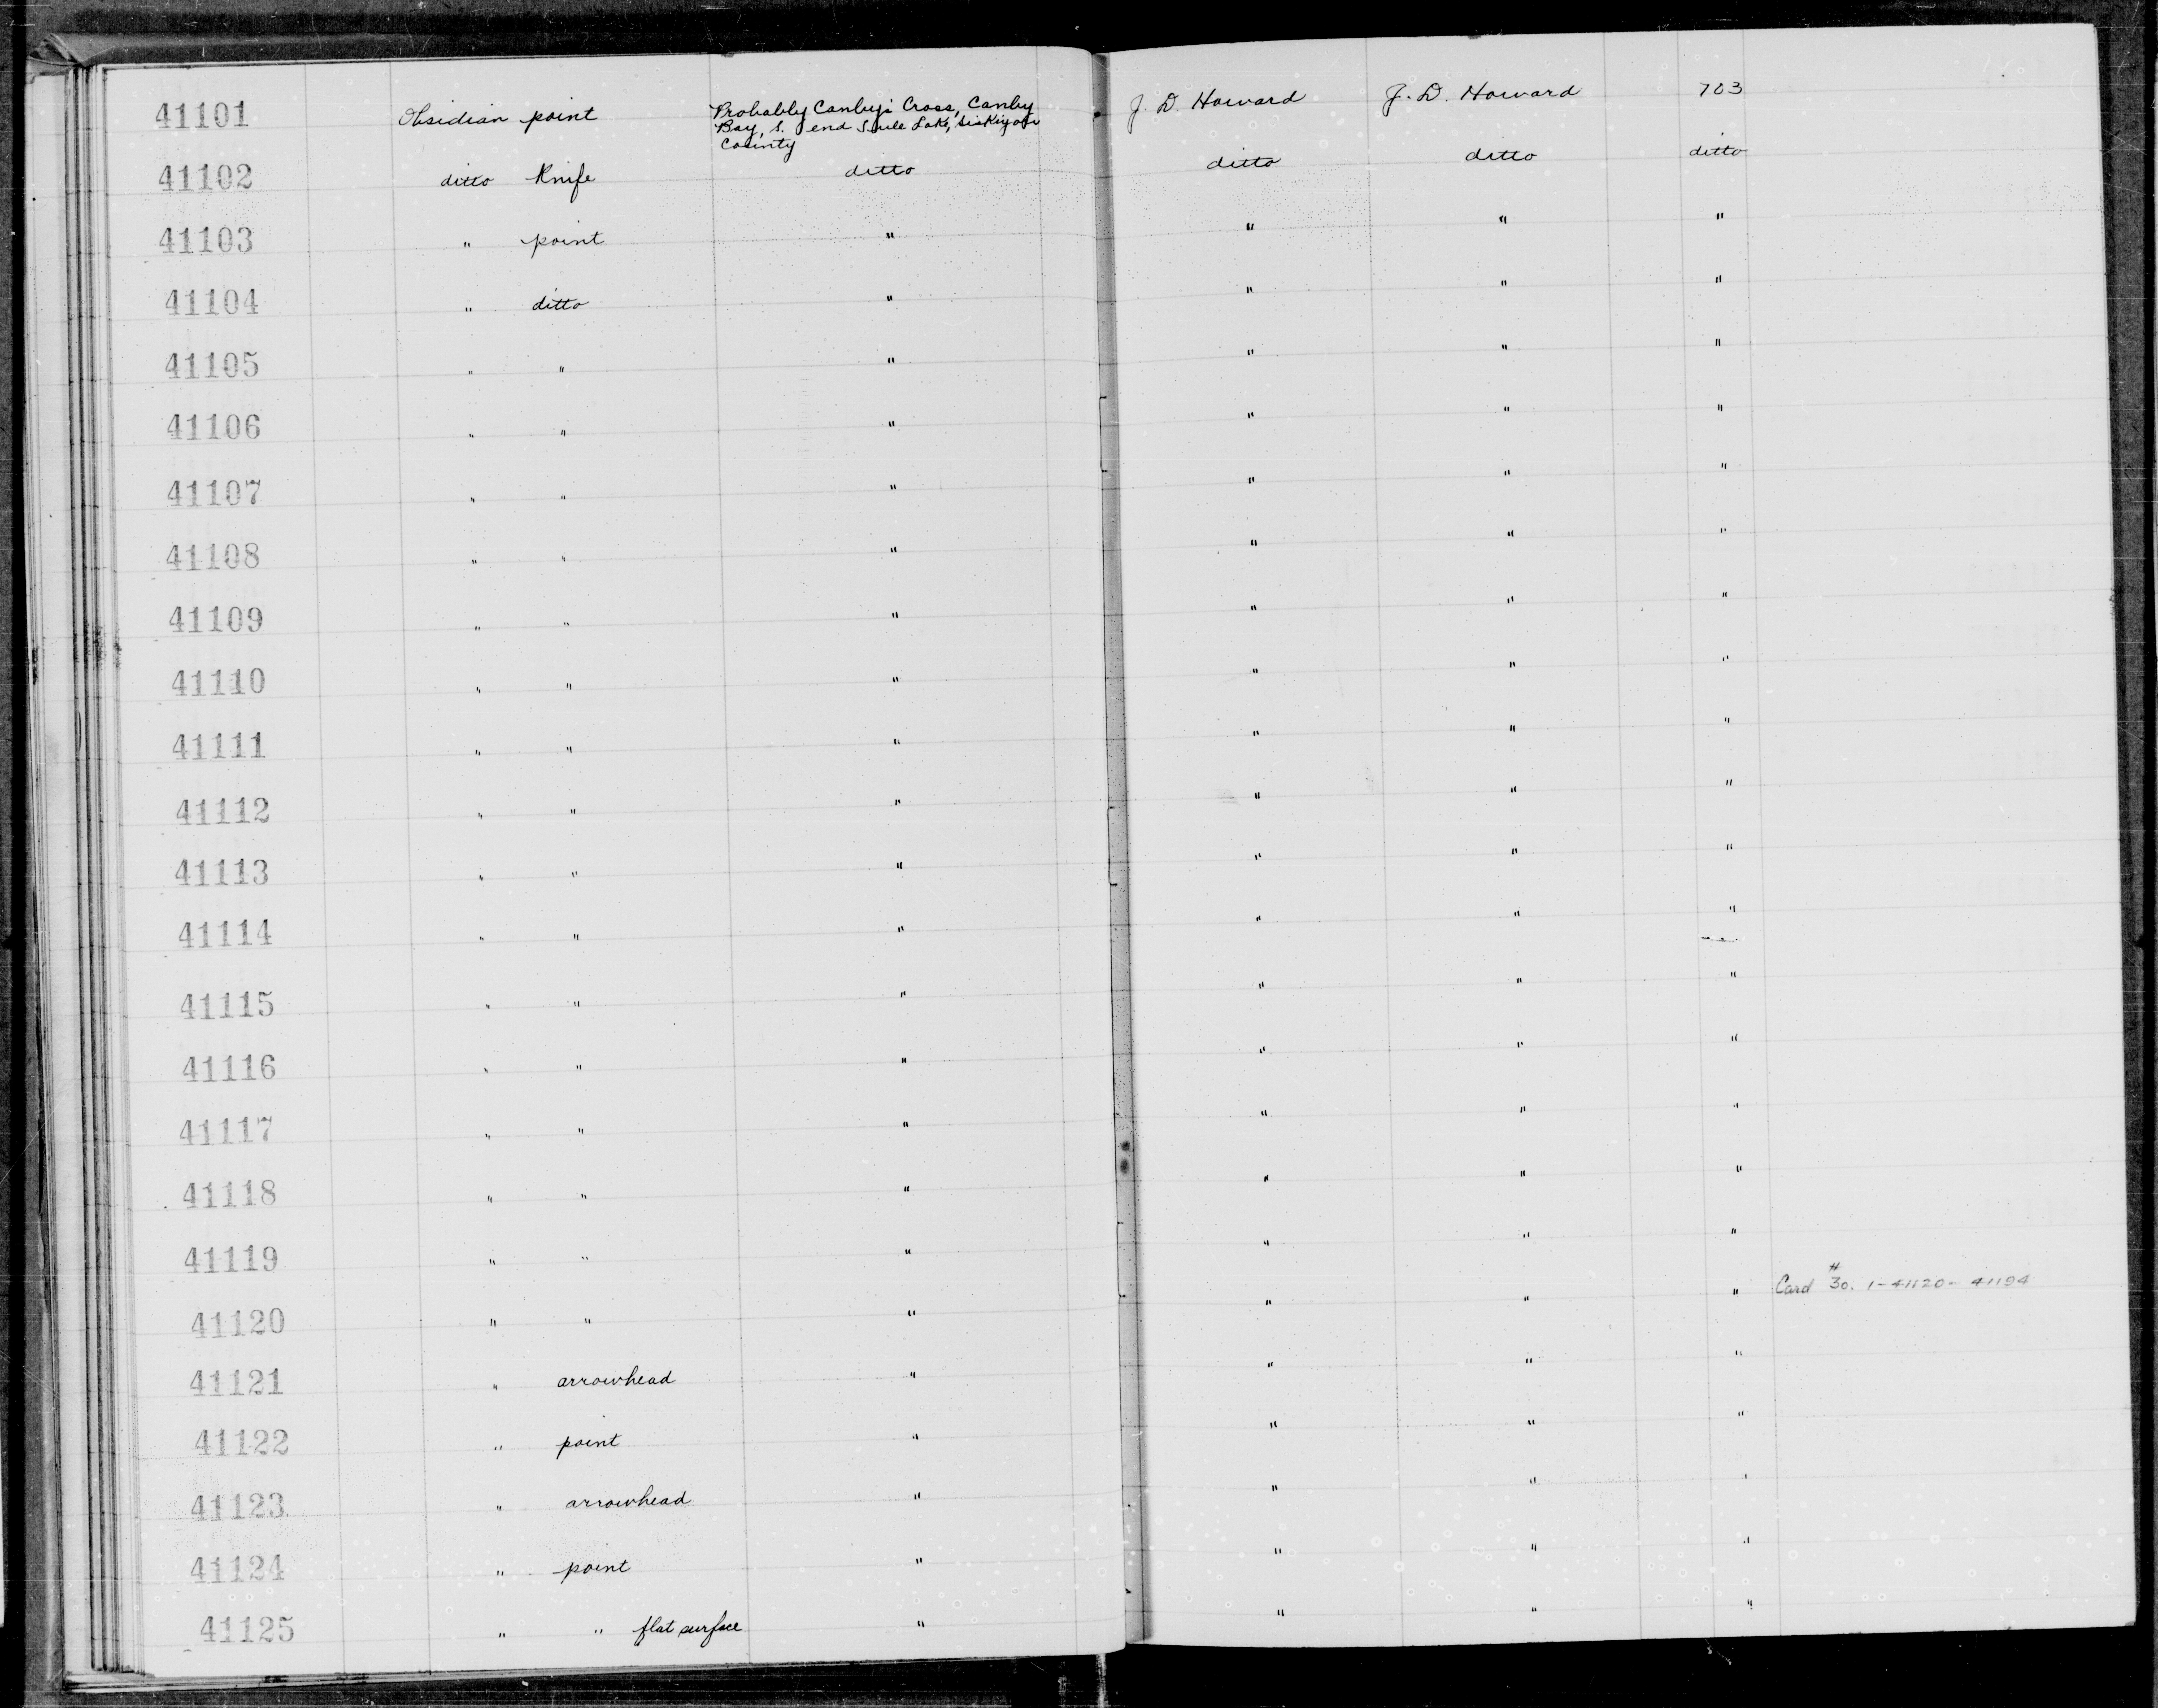 41101 Obsidian point Probably Canby's Cross, Canby Bay, S. end Tule Lake, Siskiyou County J. D. Howard J. D. Howard 703
41102 ditto Knife ditto ditto ditto ditto
41103 " point " " " "
41104 " ditto " " " "
41105 " " " " " "
41106 " " " " " "
41107 " " " " " "
41108 " " " " " "
41109 " " " " " "
41110 " " " " " "
41111 " " " " " "
41112 " " " " " "
41113 " " " " " "
41114 " " " " " "
41115 " " " " " "
41116 " " " " " "
41117 " " " " " "
41118 " " " " " "
41119 " " " " " "
41120 " " " " " " Card #30. 1-41120- 41194
41121 " arrowhead " " " "
41122 " point " " " "
41123 " arrowhead " " " "
41124 " point " " " "
41125 " " flat surface " " " "